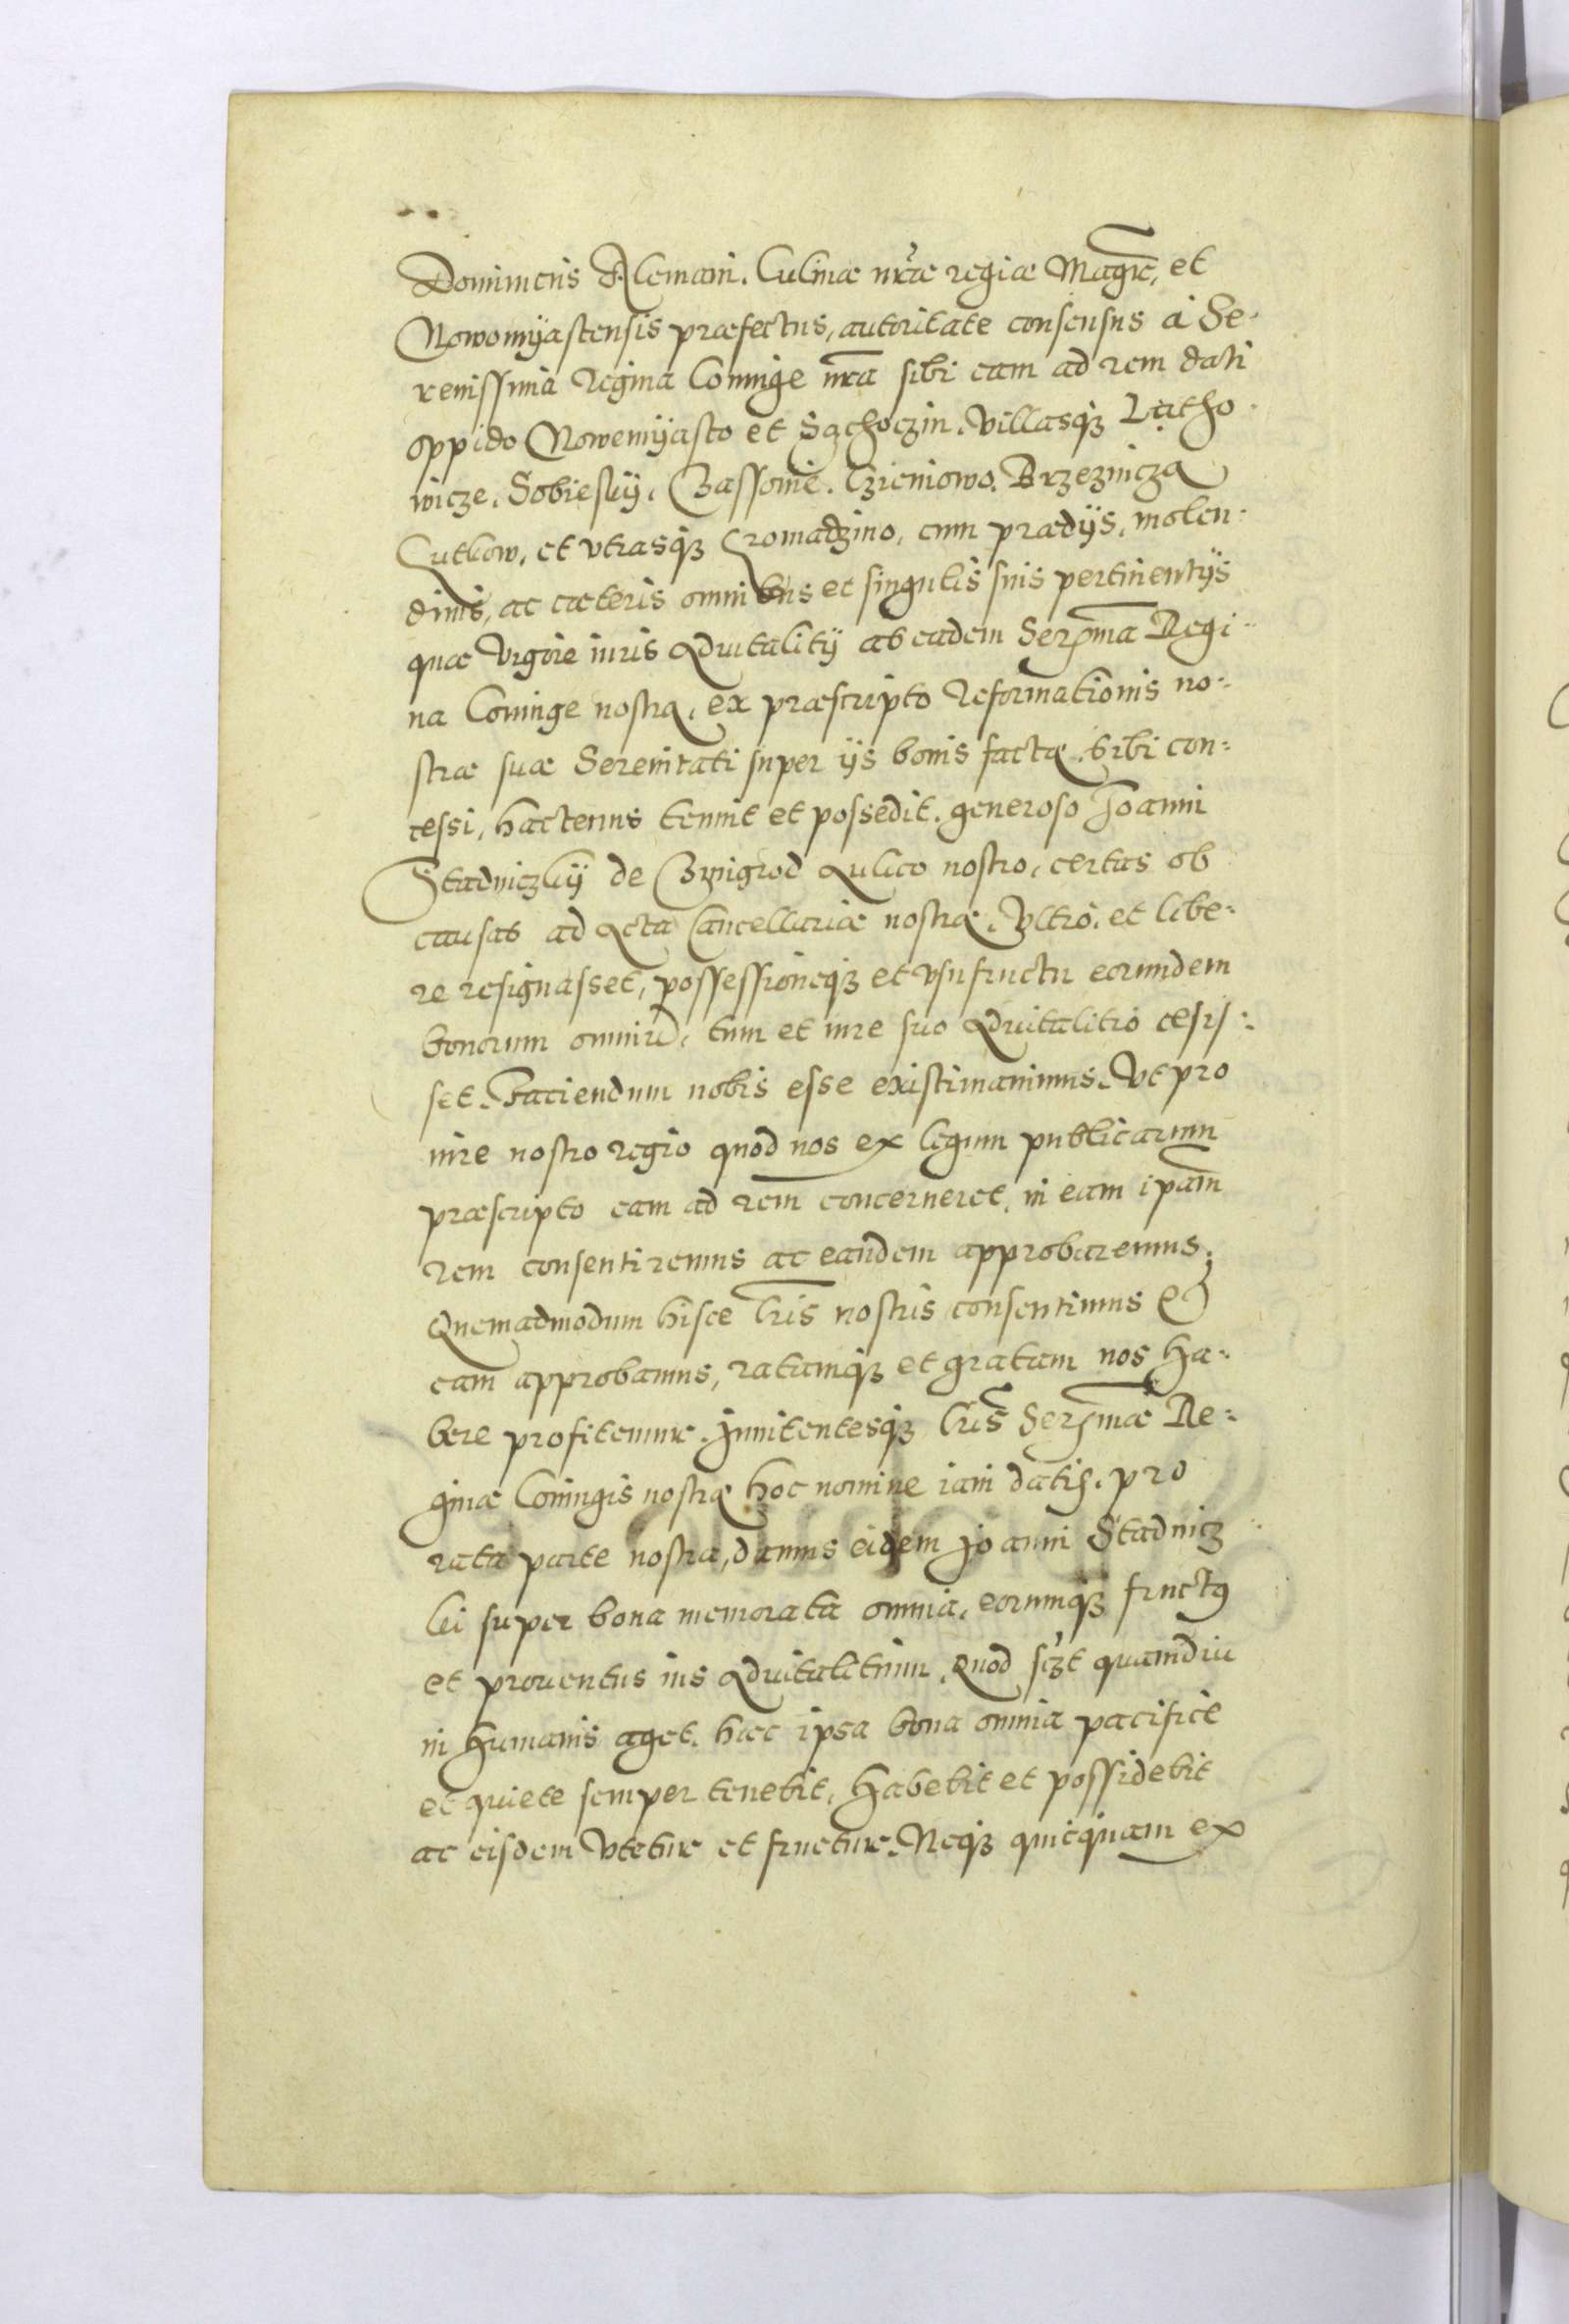 Dominicus Alemani. Culinæ nr̃æ regiæ Magr̃, et
Nowomyastensis præfectus, autoritate consensus à Se-
renissima Regina Coniuge nr̃a sibi eam ad rem dati
oppido Nowemyasto et Sąchoczin. Villasqȝ Latho-
wicze. Sobiesky. Bassonie. Czieniowo. Brzeznicza
Lutkow. et vtrasqȝ Gromadzino, cum prædijs, molen-
dinis, ac cæteris omnibus et singulis suis pertinentijs
quæ vigore iuris Aduitalitij ab eadem Serᵐᵃ Regi-
na Coniuge nostra, ex præscripto Reformationis no-
stræ suæ Serenitati super ijs bonis factæ, sibi con-
cessi, hactenus tenuit et possedit. generoso Joanni
Stadniczky de Zmigrod Aulico nostro, certas ob
causas ad Acta Cancellariæ nostræ, vltrò, et libe-
re resignasset, possessioneqȝ et vsufructu eorundem
bonorum omniũ, tum et iure suo Aduitalitio cesis-
set. Faciendum nobis esse existimauimus. Vt pro
iure nostro regio quod nos ex legum publicarum
præscripto eam ad rem̃ concerneret, in eam ipam̃
rem consentiremus ac eandem approbaremus.
Quemadmodum hisce lr̃is nostris consentimus et
eam approbamus, ratamqȝ et gratam nos ha-
bere profitemur. Innitentesqȝ lr̃is Serᵐᵃᵉ Re-
ginæ Coniugis nostræ hoc nomine iam datis, pro
rata parte nostra, damus eidem Joanni Stadnicz-
ki super bona memorata omnia, eorumqȝ fructus
et prouentus ius Aduitalitium. Quod sczt quamdiu
in humanis aget. hæc ipsa bona omnia pacifice
et quiete semper tenebit, habebit et possidebit
ac eisdem vtetur et fruetur. Neqȝ quicquam ex